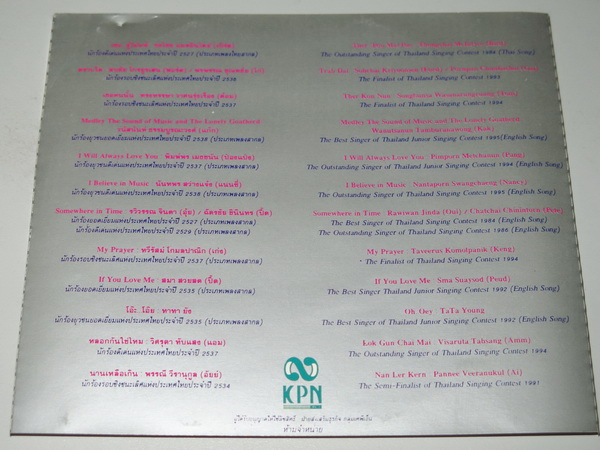 นักร้องดีเด่นแห่งประเทศไทยประจำปี 2527 (ประเภทเพลงไทยสากล)
นักร้องรองชิงชนะเลิศแห่งประเทศไทยประจำปี 2536
นักร้องรองชิงชนะเลิศแห่งประเทศไทยประจำปี 2537
Medley The Sound of Music and The Lonely Goatherd
นักร้องยุวชนดีเด่นแห่งประเทศไทยประจำปี 2538 (ประเภทเพลงสากล)
I Will Always Love You : พิมพ์พร เมฆชนัน
นักร้องยุวชนดีเด่นแห่งประเทศไทยประจำปี 2537 (ประเภทเพลงสากล)
I Believe in Music : นันทพร สว่างแจ้ง (แนนซี่)
นักร้องยุวชนดีเด่นแห่งประเทศไทยประจำปี 2538 (ประเภทเพลงสากล)
Somewhere in Time : รวิวรรณ จินดา (อุ้ย) / ฉัตรชัย
นักร้องยอดเยี่ยมแห่งประเทศไทยประจำปี 2527 (ประเภทเพลงสากล)
นักร้องดีเด่นแห่งประเทศไทยประจำปี 2529 (ประเภทเพลงสากล)
My Prayer : ทวีรัสม์ โกมลปาณิก (เก่ง)
นักร้องรองชิงชนะเลิศแห่งประเทศไทยประจำปี 2537
If You Love Me : สมา สวยสด (ปี๊ด)
นักร้องยุวชนยอดเยี่ยมแห่งประเทศไทยประจำปี 2535 (ประเภทเพลงสากล)
โอ๊ะ..โอ๊ย : ทาทา ยัง
นักร้องยุวชนยอดเยี่ยมแห่งประเทศไทยประจำปี 2535 (ประเภทเพลงสากล)
หลอกกันใช่ไหม : วิสรุตา ทับแสง (แอม)
นักร้องดีเด่นแห่งประเทศไทยประจำปี 2537
นานเหลือเกิน : พรรณี วีรานุกูล (อัยย์)
นักร้องรองชิงชนะเลิศแห่งประเทศไทยประจำปี 2534
The Outstanding Singer of Thailand Singing Contest 1984 (Thai Song)
The Finalist of Thailand Singing Contest 1993
The Finalist of Thailand Singing Contest 1994
Medley The Sound of Music and The Lonely Goatherd
The Best Singer of Thailand Junior Singing Contest 1995(English Song)
I Will Always Love You : Pimporn Mekchanan (Pang)
The Outstanding Singer of Thailand Junior Singing Contest 1994 (English Song)
I Believe in Music : Nantaporn Swangchaeng (Nancy)
The Outstanding Singer of Thailand Junior Singing Contest 1995 (English Song)
Somewhere in Time : Rawiwan Jinda (Oui) / Chatchai
The Best Singer of Thailand Singing Contest 1984 (English Song)
The Outstanding Singer of Thailand Singing Contest 1986 (English Song)
My Prayer : Taveerus Komolpanik (Keng)
The Finalist of Thailand Singing Contest 1994
If You Love Me : Sma Suaysod (Peud)
The Best Singer of Thailand Junior Singing Contest 1992 (English Song)
Oh Oey : TaTa Young
The Best Singer of Thailand Junior Singing Contest 1992 (English Song)
Lok Gun Chai Mai : Visaruta Tabsang (Amm)
The Outstanding Singer of Thailand Singing Contest 1994
Nan Ler Kern : Pannee Veeranukul (Ai)
The Semi-Finalist of Thailand Singing Contest 1991
KPN
ห้ามจำหน่าย